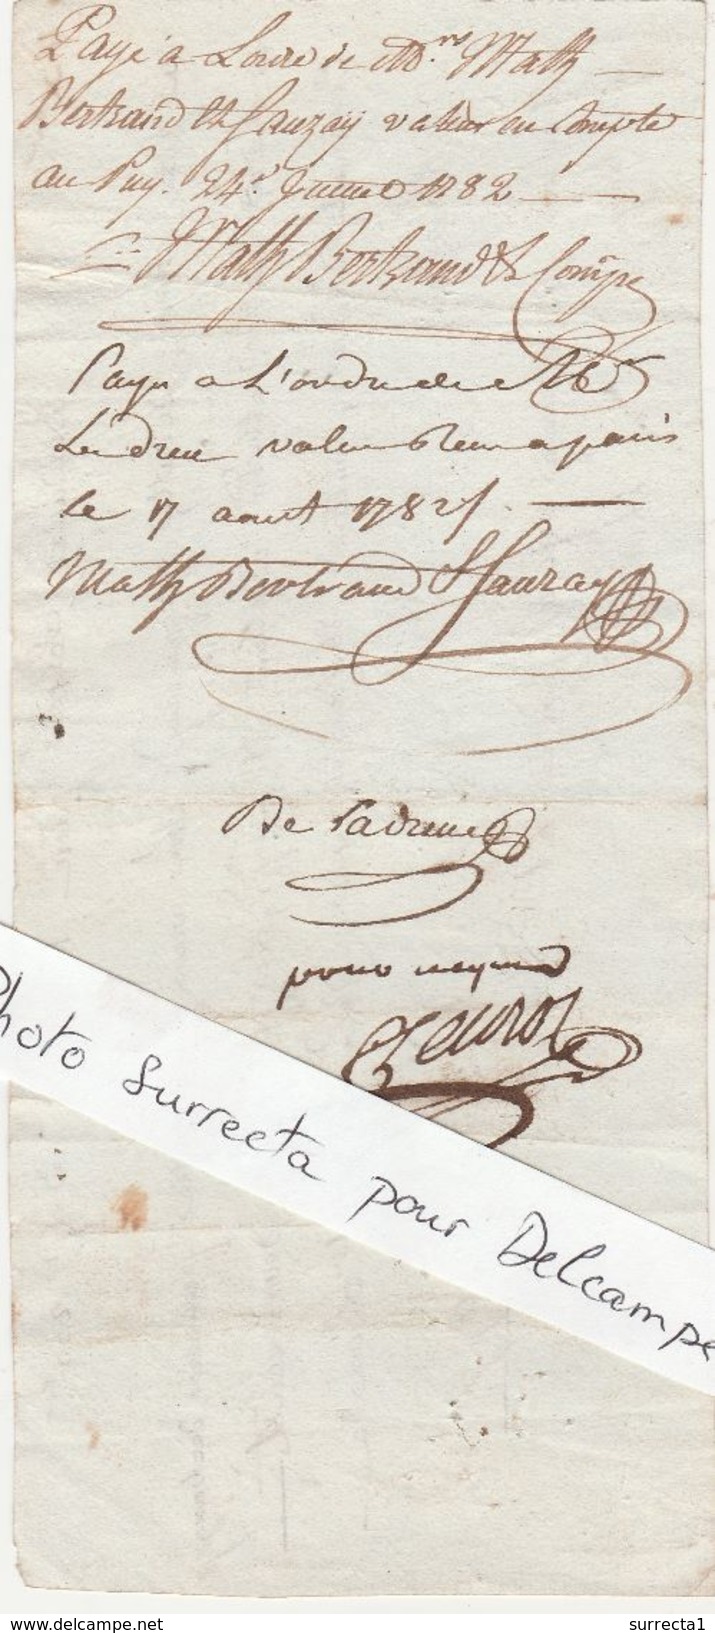 Payé a Lordre de M.rs Math
Bertrand et Sauzay valeur en Compte
au Puy. 24.e Juillet 1782
Math Bertrand & Compe
Payer a L'ordre de Mr
Ledreu valeur Recu a paris
le 17 aout 1782
Math Bertrand Sauzay
De
pour
Photo Surrecta pour Delcampe
www.delcampe.net
surrecta1